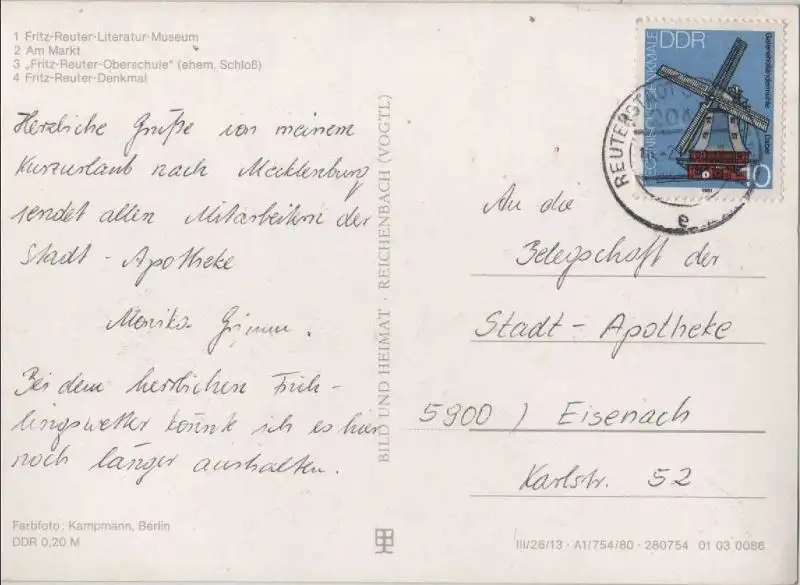 1 Fritz-Reuter-Literatur-Museum
2 Am Markt
3 „Fritz-Reuter-Oberschule“ (ehem. Schloß)
4 Fritz-Reuter-Denkmal
Herzliche Grüße von meinem
Kurzurlaub nach Mecklenburg
sendet allen Mitarbeitern der
Stadt - Apotheke
Monika Grimm.
Bei dem herrlichen Früh-
lingswetter könnte ich es hier
noch länger aushalten.
Farbfoto: Kampmann, Berlin
DDR 0,20 M
BILD UND HEIMAT · REICHENBACH (VOGTL)
DDR
Galerieholländermühle
10
1981
REUTERSTADT
e
An die
Belegschaft der
Stadt - Apotheke
5900 ) Eisenach
Karlstr. 52
III/26/13 · A1/754/80 · 280754 01 03 0086